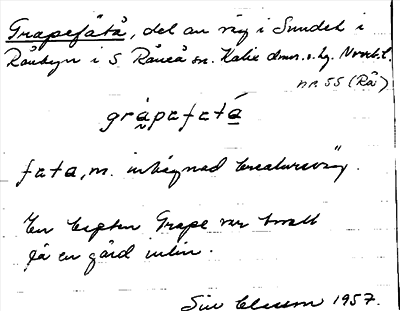 Grapefåtå, del av väg i Sundet i
Rånbyn i S Råneå sn. Kalix dmr. o. hg. Norrb. l.
nr. 55 (Rå)
gråpafatá
fata, m. inhägnad kreatursväg.
En kapten Grape var bosatt
på en gård intill.
Siv 1957.